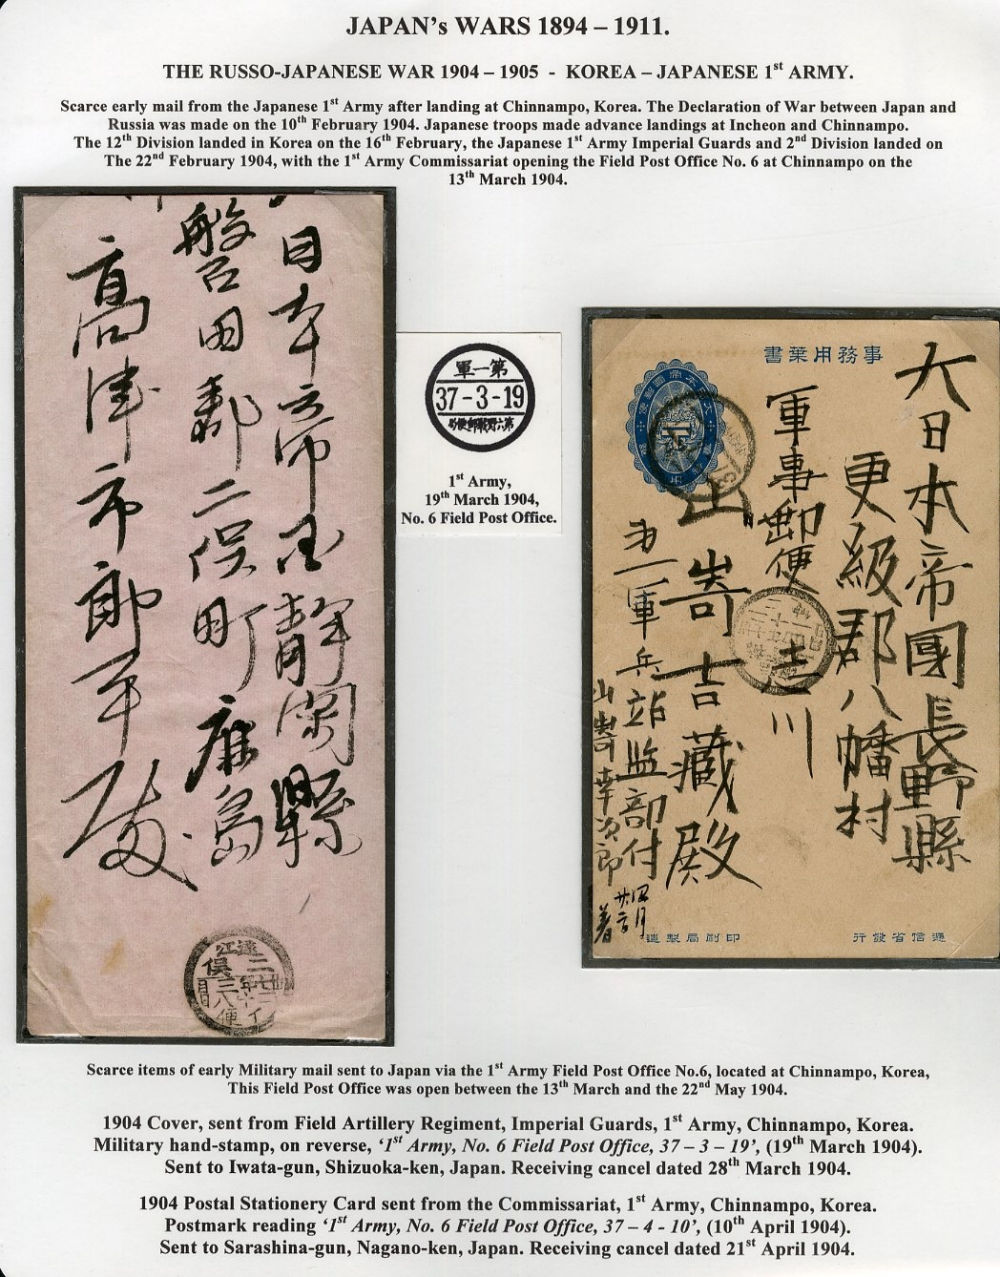 JAPAN's WARS 1894 – 1911.
THE RUSSO-JAPANESE WAR 1904 – 1905 - KOREA – JAPANESE 1st ARMY.
Scarce early mail from the Japanese 1st Army after landing at Chinnampo, Korea. The Declaration of War between Japan and
Russia was made on the 10th February 1904. Japanese troops made advance landings at Incheon and Chinnampo.
The 12th Division landed in Korea on the 16th February, the Japanese 1st Army Imperial Guards and 2nd Division landed on
The 22nd February 1904, with the 1st Army Commissariat opening the Field Post Office No. 6 at Chinnampo on the
13th March 1904.
日本帝国静岡縣
磐田郡二俣町鹿島
高津市郎平殿
遠江
二俣
便
第一軍
37-3-19
第六野戰郵便局
1st Army,
19th March 1904,
No. 6 Field Post Office.
事務用葉書
大日本帝國長野縣
更級郡八幡村
志川
軍事郵便
山嵜吉藏殿
第一軍兵站監部付
山嵜幸次郎
四月
着
遞信省發行
印刷局製造
Scarce items of early Military mail sent to Japan via the 1st Army Field Post Office No.6, located at Chinnampo, Korea,
This Field Post Office was open between the 13th March and the 22nd May 1904.
1904 Cover, sent from Field Artillery Regiment, Imperial Guards, 1st Army, Chinnampo, Korea.
Military hand-stamp, on reverse, ‘1st Army, No. 6 Field Post Office, 37 – 3 – 19’, (19th March 1904).
Sent to Iwata-gun, Shizuoka-ken, Japan. Receiving cancel dated 28th March 1904.
1904 Postal Stationery Card sent from the Commissariat, 1st Army, Chinnampo, Korea.
Postmark reading ‘1st Army, No. 6 Field Post Office, 37 – 4 - 10’, (10th April 1904).
Sent to Sarashina-gun, Nagano-ken, Japan. Receiving cancel dated 21st April 1904.